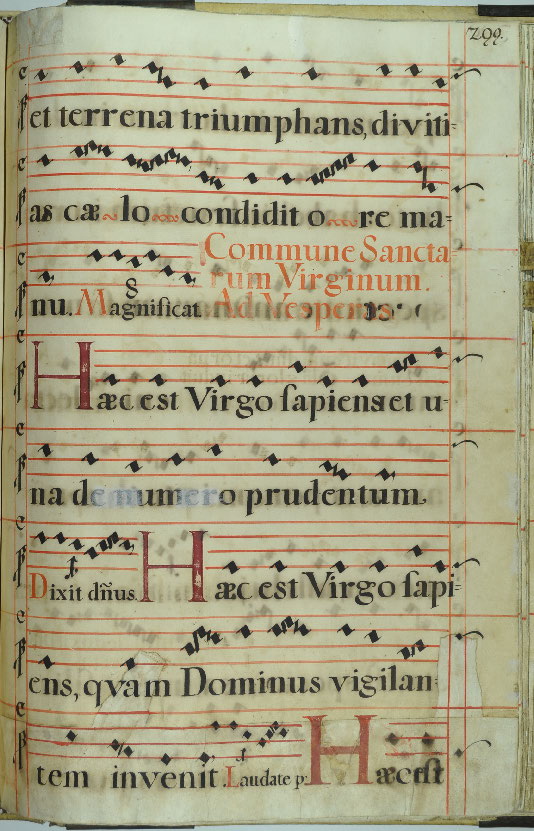 299.
et terrena triumphans, diviti=
as cæ lo condidit o re ma=
Commune Sancta
rum Virginum.
nu. Magnificat. Ad Vesperas
Hæc est Virgo sapiens et u-
na de numero prudentum
Dixit dñus. Hæc est Virgo sapi=
ens, qvam Dominus vigilan=
tem invenit. Laudate p: Hæc est